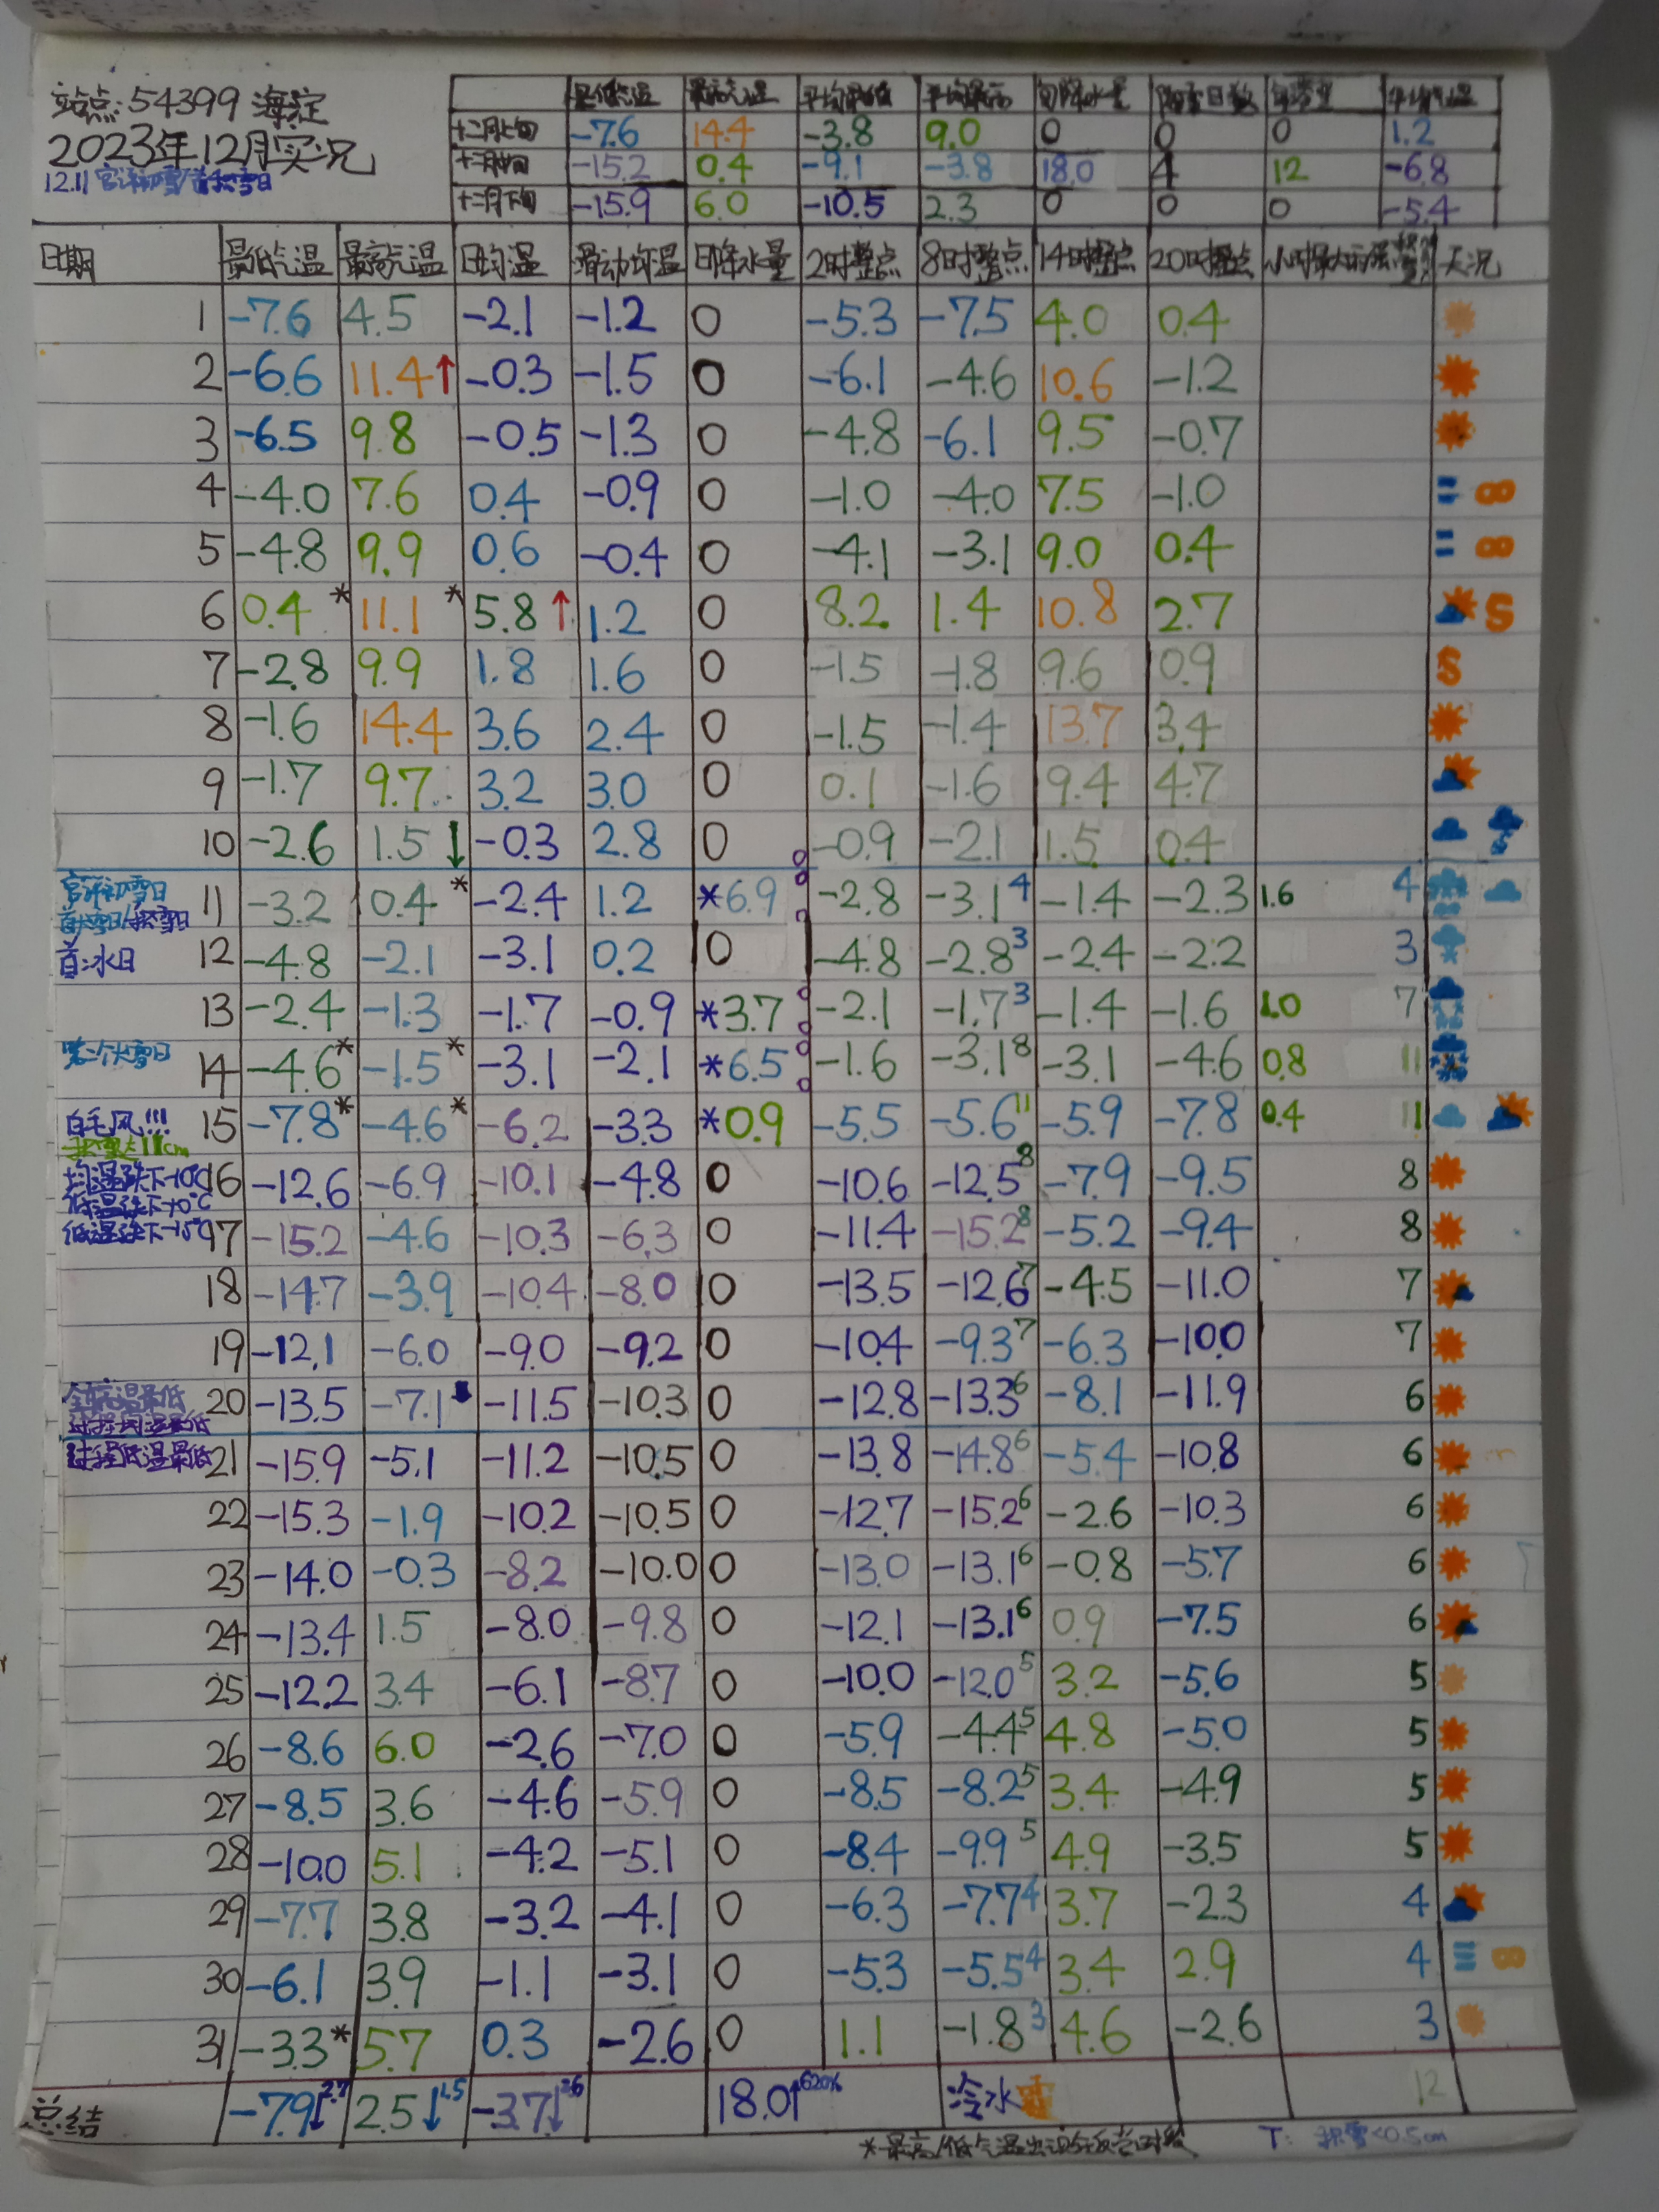 站点:54399 海淀
2023年12月实况
12.11 官译初雪/首积雪日
最低气温 最高气温 平均最低 平均最高 旬降水量 降雪日数 平均气温
十二月上旬 -7.6 14.4 -3.8 9.0 0 0 0 1.2
十二月中旬 -15.2 0.4 -9.1 -3.8 18.0 4 12 -6.8
十二月下旬 -15.9 6.0 -10.5 2.3 0 0 0 -5.4
日期 最低气温 最高气温 日均温 滑动均温 日降水量 2时整点 8时整点 14时整点 20时整点 小时最大雨强 天况
1 -7.6 4.5 -2.1 -1.2 0 -5.3 -7.5 4.0 0.4
2 -6.6 11.4↑ -0.3 -1.5 0 -6.1 -4.6 10.6 -1.2
3 -6.5 9.8 -0.5 -1.3 0 -4.8 -6.1 9.5 -0.7
4 -4.0 7.6 0.4 -0.9 0 -1.0 -4.0 7.5 -1.0
5 -4.8 9.9 0.6 -0.4 0 -4.1 -3.1 9.0 0.4
6 0.4* 11.1* 5.8↑ 1.2 0 8.2 1.4 10.8 2.7
7 -2.8 9.9 1.8 1.6 0 -1.5 -1.8 9.6 0.9
8 -1.6 14.4 3.6 2.4 0 -1.5 -1.4 13.7 3.4
9 -1.7 9.7 3.2 3.0 0 0.1 -1.6 9.4 4.7
10 -2.6 1.5↓ -0.3 2.8 0 -0.9 -2.1 1.5 0.4
官译初雪日
首大雪日/积雪日
11 -3.2 0.4* -2.4 1.2 *6.9 -2.8 -3.1 4 -1.4 -2.3 1.6 4
首冰日 12 -4.8 -2.1 -3.1 0.2 0 -4.8 -2.8 3 -2.4 -2.2 3
13 -2.4 -1.3 -1.7 -0.9 *3.7 -2.1 -1.7 3 -1.4 -1.6 1.0 7
第二个大雪日 14 -4.6* -1.5* -3.1 -2.1 *6.5 -1.6 -3.1 8 -3.1 -4.6 0.8 11
白毛风!!! 15 -7.8* -4.6* -6.2 -3.3 *0.9 -5.5 -5.6 11 -5.9 -7.8 0.4 11
积雪达11cm
均温跌下-10℃ 16 -12.6 -6.9 -10.1 -4.8 0 -10.6 -12.5 8 -7.9 -9.5 8
低温跌下-10℃
低温跌下-15℃ 17 -15.2 -4.6 -10.3 -6.3 0 -11.4 -15.2 8 -5.2 -9.4 8
18 -14.7 -3.9 -10.4 -8.0 0 -13.5 -12.6 7 -4.5 -11.0 7
19 -12.1 -6.0 -9.0 -9.2 0 -10.4 -9.3 7 -6.3 -10.0 7
20 -13.5 -7.1↓ -11.5 -10.3 0 -12.8 -13.3 6 -8.1 -11.9 6
过程均温最低
过程低温最低 21 -15.9 -5.1 -11.2 -10.5 0 -13.8 -14.8 6 -5.4 -10.8 6
22 -15.3 -1.9 -10.2 -10.5 0 -12.7 -15.2 6 -2.6 -10.3 6
23 -14.0 -0.3 -8.2 -10.0 0 -13.0 -13.1 6 -0.8 -5.7 6
24 -13.4 1.5 -8.0 -9.8 0 -12.1 -13.1 6 0.9 -7.5 6
25 -12.2 3.4 -6.1 -8.7 0 -10.0 -12.0 5 3.2 -5.6 5
26 -8.6 6.0 -2.6 -7.0 0 -5.9 -4.4 5 4.8 -5.0 5
27 -8.5 3.6 -4.6 -5.9 0 -8.5 -8.2 5 3.4 -4.9 5
28 -10.0 5.1 -4.2 -5.1 0 -8.4 -9.9 5 4.9 -3.5 5
29 -7.7 3.8 -3.2 -4.1 0 -6.3 -7.7 4 3.7 -2.3 4
30 -6.1 3.9 -1.1 -3.1 0 -5.3 -5.5 4 3.4 2.9 4
31 -3.3* 5.7 0.3 -2.6 0 1.1 -1.8 3 4.6 -2.6 3
总结 -7.9↓2.7 2.5↓1.5 -3.7↓2.6 18.0↑620% 冷水 12
*最高/低气温出现在反常时段 T: 积雪<0.5cm